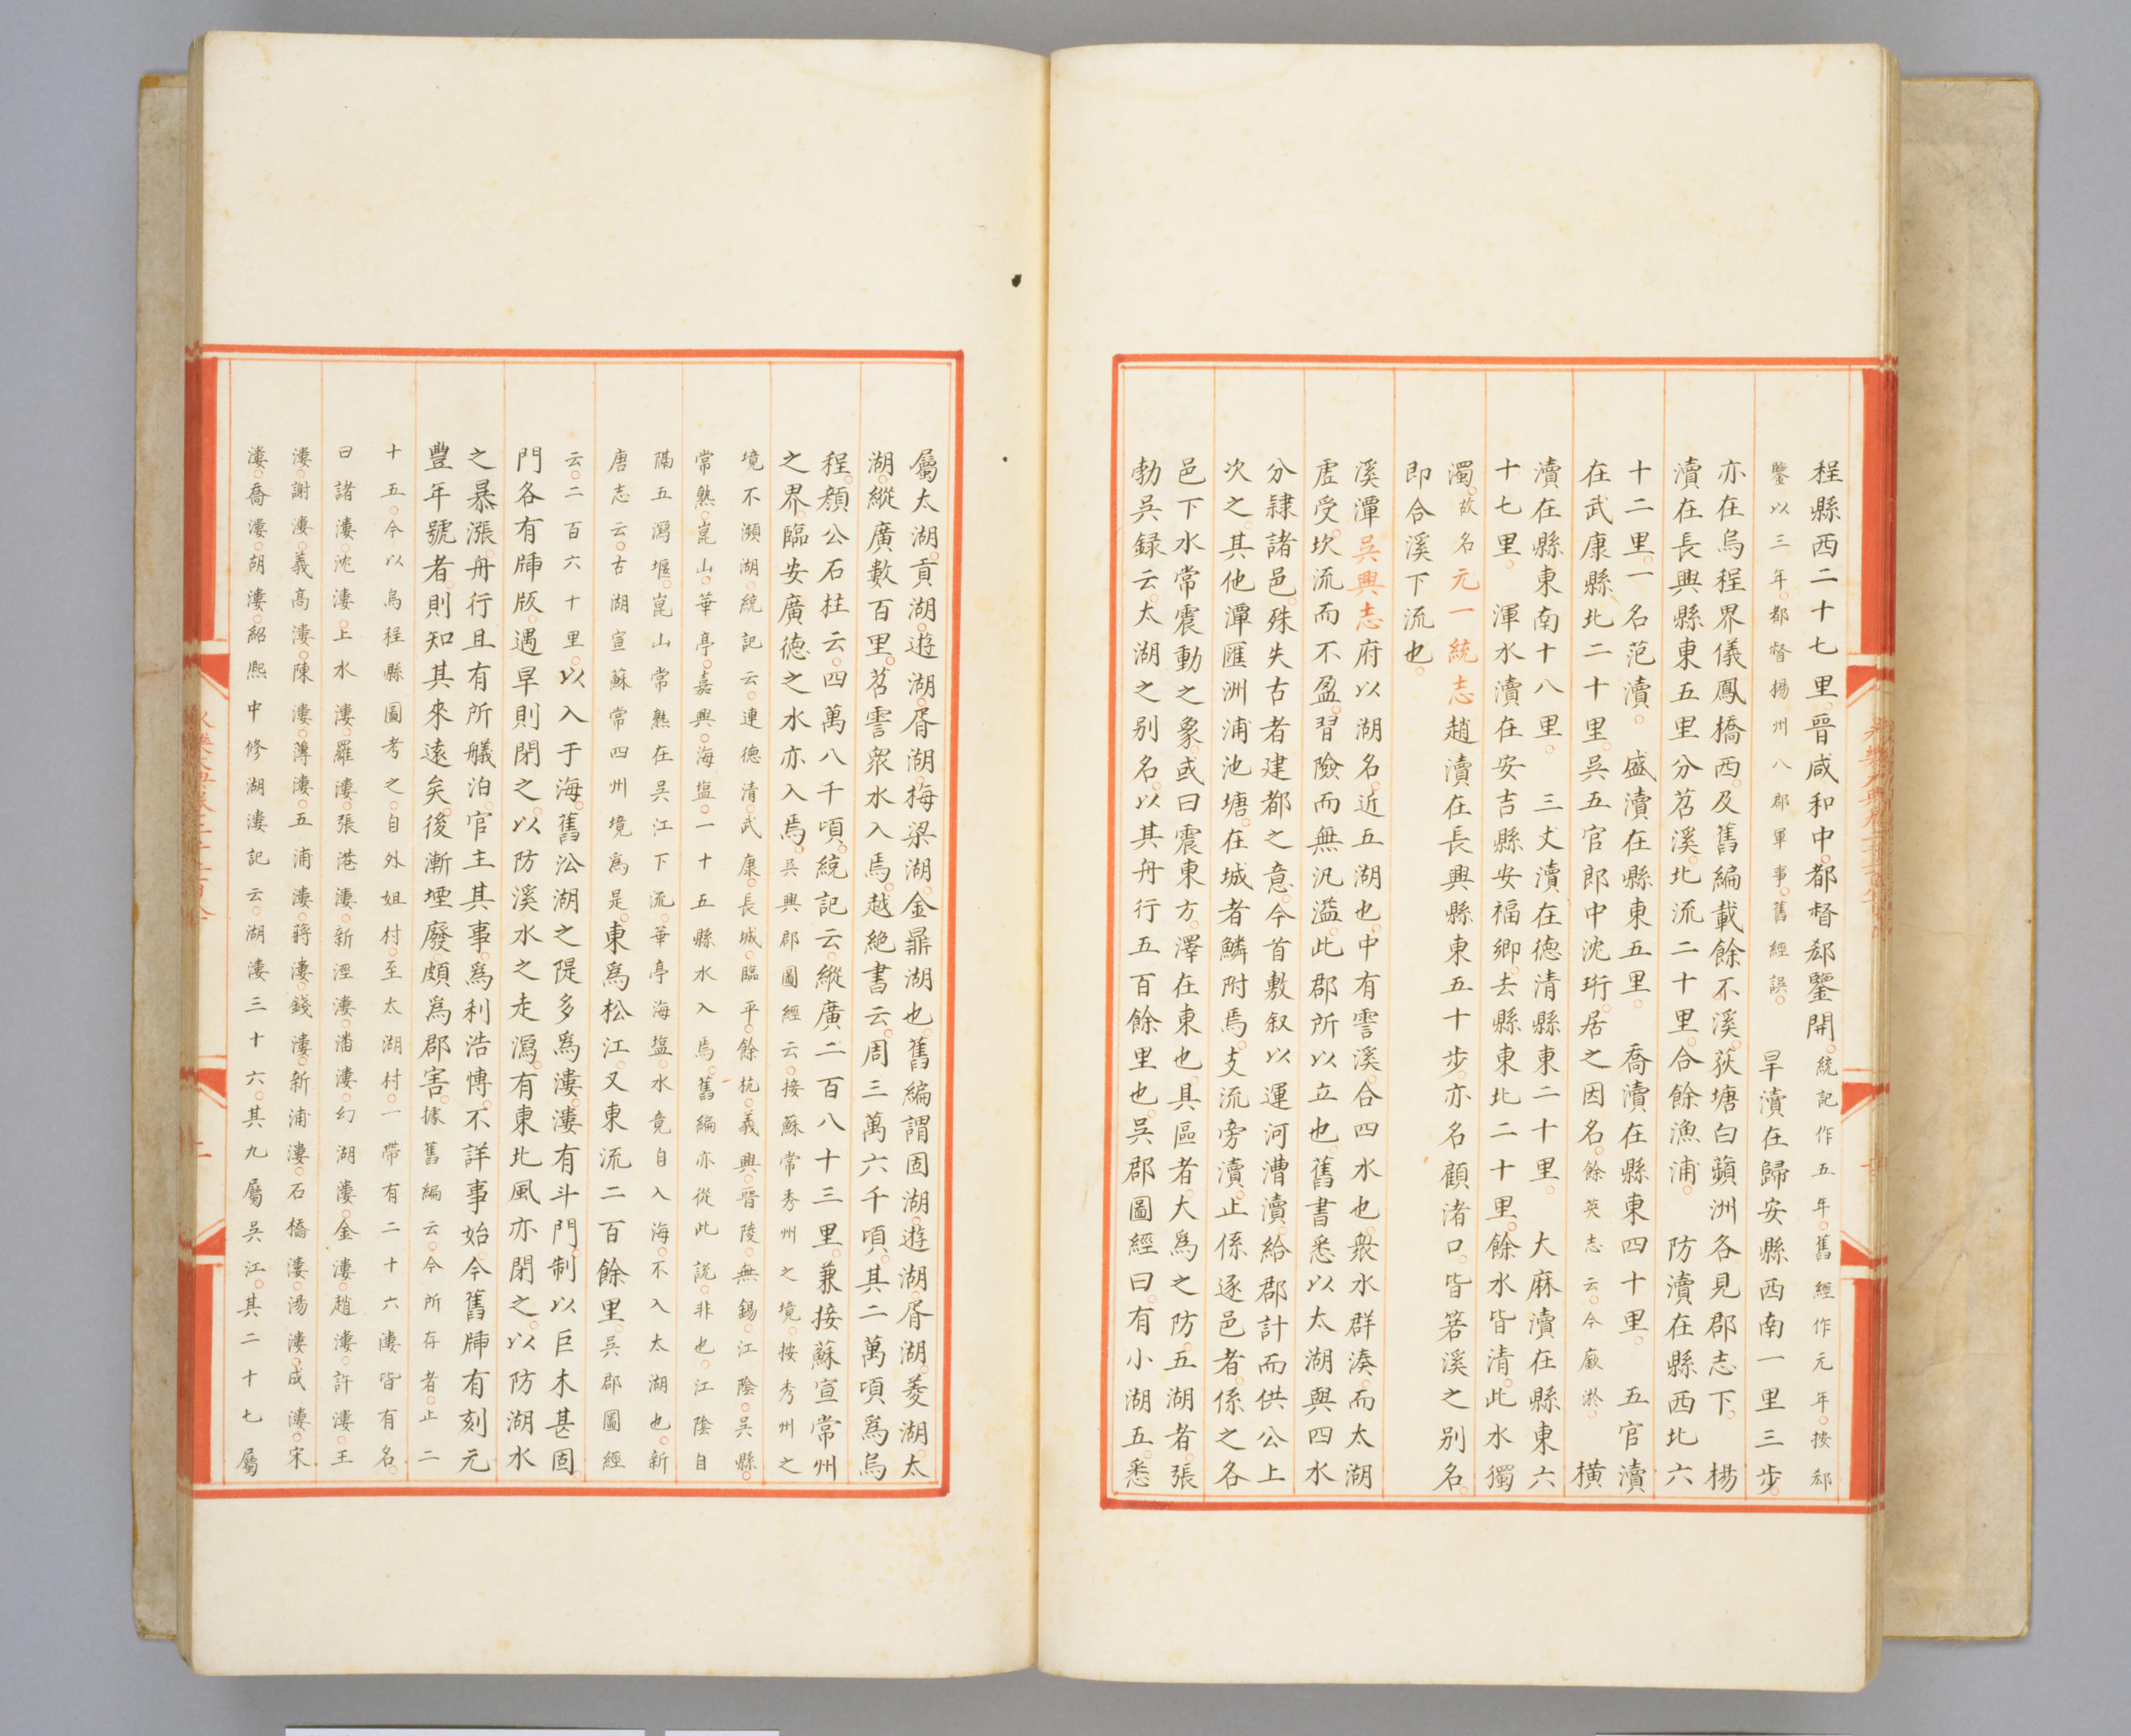 程縣西二十七里晉咸和中都督郄鑒開統記作五年舊經作元年按郄
鑒以三年都督揚州八郡軍事舊經誤 旱瀆在歸安縣西南一里三步
亦在烏程界儀鳳橋西及舊編載餘不溪荻塘白蘋洲各見郡志下 楊
瀆在長興縣東五里分苕溪北流二十里合餘漁浦 防瀆在縣西北六
十二里一名范瀆 盛瀆在縣東五里 喬瀆在縣東四十里 五官瀆
在武康縣北二十里吳五官郎中沈珩居之因名餘英志云今廢淤 橫
瀆在縣東南十八里 三丈瀆在德清縣東二十里 大麻瀆在縣東六
十七里 渾水瀆在安吉縣安福鄉去縣東北二十里餘水皆清此水獨
濁故名元一統志趙瀆在長興縣東五十步亦名顧渚口皆箬溪之别名
即合溪下流也
溪潭吳興志府以湖名近五湖也中有霅溪合四水也衆水群湊而太湖
虛受坎流而不盈習險而無汎溢此郡所以立也舊書悉以太湖與四水
分隸諸邑殊失古者建都之意今首敷叙以運河漕瀆給郡計而供公上
次之其他潭匯洲浦池塘在城者鱗附焉支流旁瀆止係逐邑者係之各
邑下水常震動之象或曰震東方澤在東也具區者大為之防五湖者張
勃吳録云太湖之别名以其舟行五百餘里也吳郡圖經曰有小湖五悉
屬太湖貢湖遊湖胥湖梅梁湖金鼎湖也舊編謂固湖遊湖胥湖菱湖太
湖縱廣數百里苕霅衆水入焉越絶書云周三萬六千頃其二萬頃為烏
程顏公石柱云四萬八千頃統記云縱廣二百八十三里兼接蘇宣常州
之界臨安廣德之水亦入焉吳興郡圖經云接蘇常秀州之境按秀州之
境不瀕湖統記云連德清武康長城臨平餘杭義興晉陵無錫江陰吳縣
常熟崑山華亭嘉興海塩一十五縣水入焉舊編亦從此説非也江陰自
隔五瀉堰崑山常熟在吳江下流華亭海塩水竟自入海不入太湖也新
唐志云古湖宣蘇常四州境為是東為松江又東流二百餘里吳郡圖經
云二百六十里以入于海舊㳂湖之隄多為漊漊有斗門制以巨木甚固
門各有牐版遇旱則閉之以防溪水之走瀉有東北風亦閉之以防湖水
之暴漲舟行且有所艤泊官主其事為利浩博不詳事始今舊牐有刻元
豐年號者則知其來遠矣後漸堙廢頗為郡害據舊編云今所存者止二
十五今以烏程縣圖考之自外姐村至太湖村一帶有二十六漊皆有名
曰諸漊沈漊上水漊羅漊張港漊新涇漊潘漊幻湖漊金漊趙漊許漊王
漊謝漊義高漊陳漊薄漊五浦漊蔣漊錢漊新浦漊石橋漊湯漊成漊宋
漊喬漊胡漊紹熙中修湖漊記云湖漊三十六其九屬吳江其二十七屬